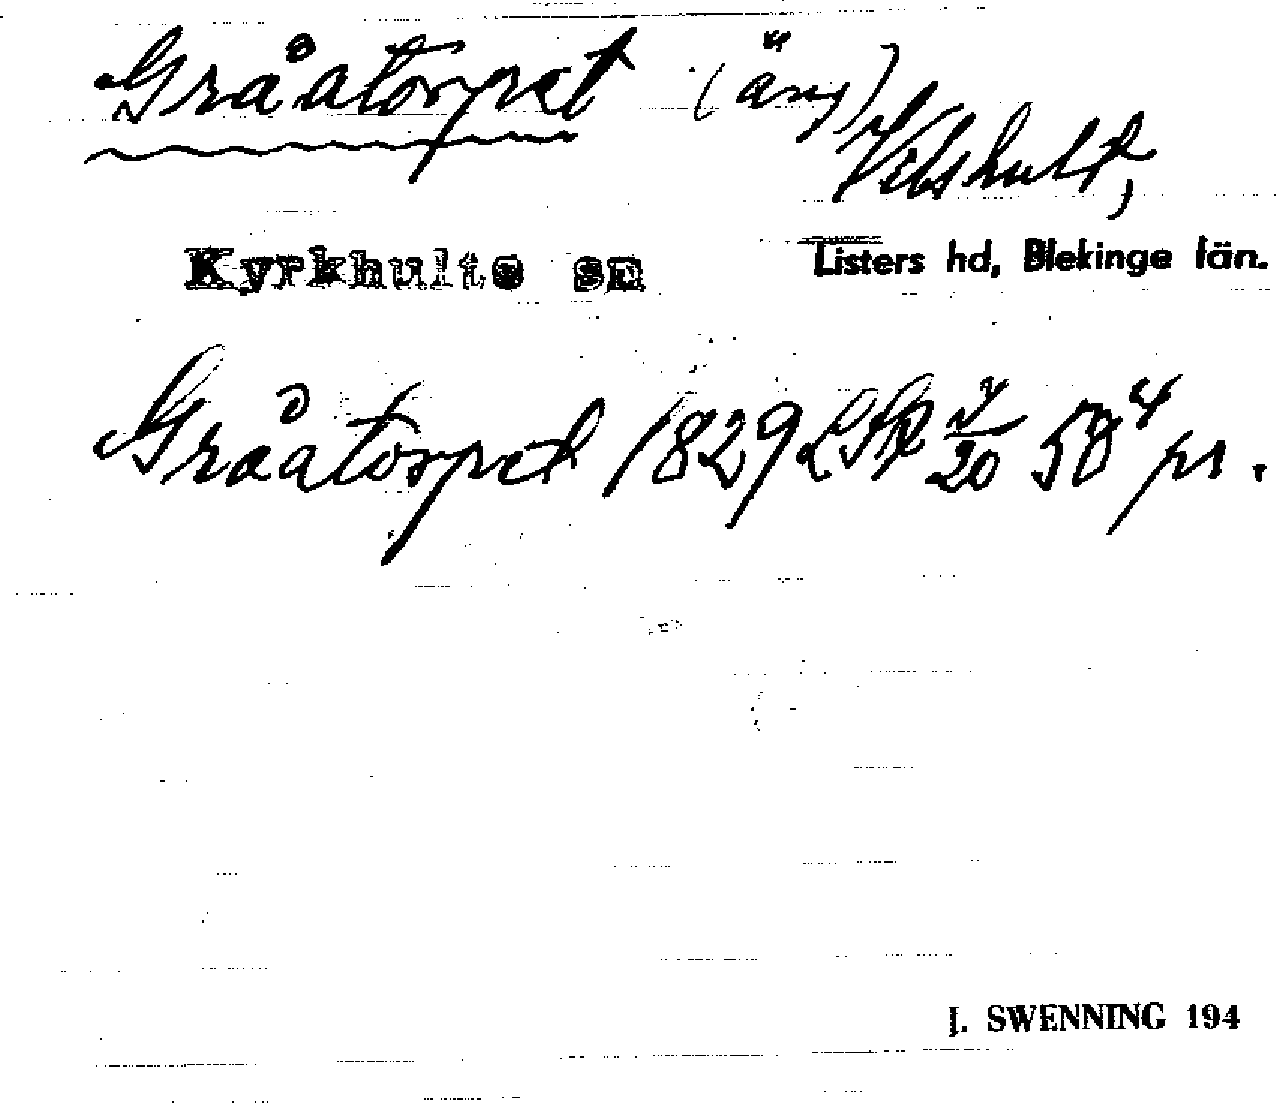 Gråatorpet (äng) Vilshult,
Kyrkhults sn Listers hd, Blekinge län.
Gråatorpet 1829 LSk V/20 58⁴ pr.
J. SWENNING 194